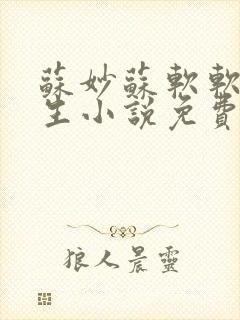 蘇妙蘇軟軟
生小說免費
狼人晨靈